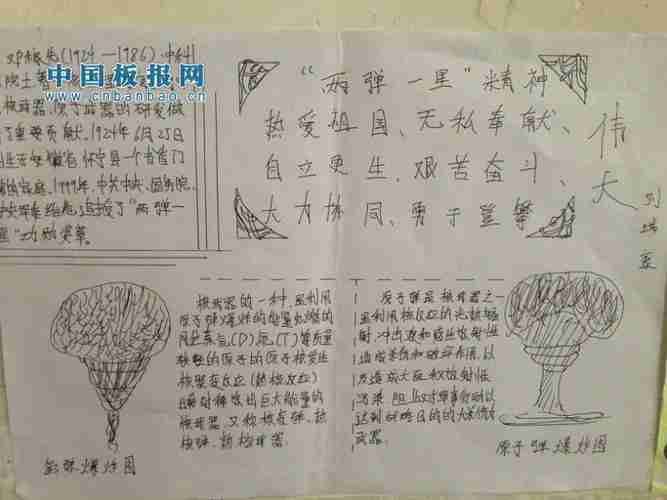 邓稼先(1924—1986),中科
院士著
中国板报网
www.cnbanbao.cn
核武器、原子武器的研发做
了重要贡献,1924年6月25日
出生于安徽省怀宁县一个书香门
第的家庭。1999年,中共中央、国务院、
中央军委给他追授了“两弹一
星”功勋奖章。
“两弹一星”精神
热爱祖国、无私奉献、
自立更生、艰苦奋斗、
大力协同、勇于登攀
伟大
刘
核武器的一种,是利用
原子弹爆炸的能量点燃的
氘(D)氚(T)等质量
较轻的原子的原子核发生
核聚变反应(热核反应)
瞬时释放出巨大能量的
核武器,又称核聚弹、热
核弹、热核武器。
原子弹是核武器之一
是利用核反应的光热辐
射、冲击波和感生放射性
造成杀伤和破坏作用,以
及造成大面积放射性
污染,阻止对方军事行动以
达到战略目的的大杀伤力
武器。
氢弹爆炸图
原子弹爆炸图